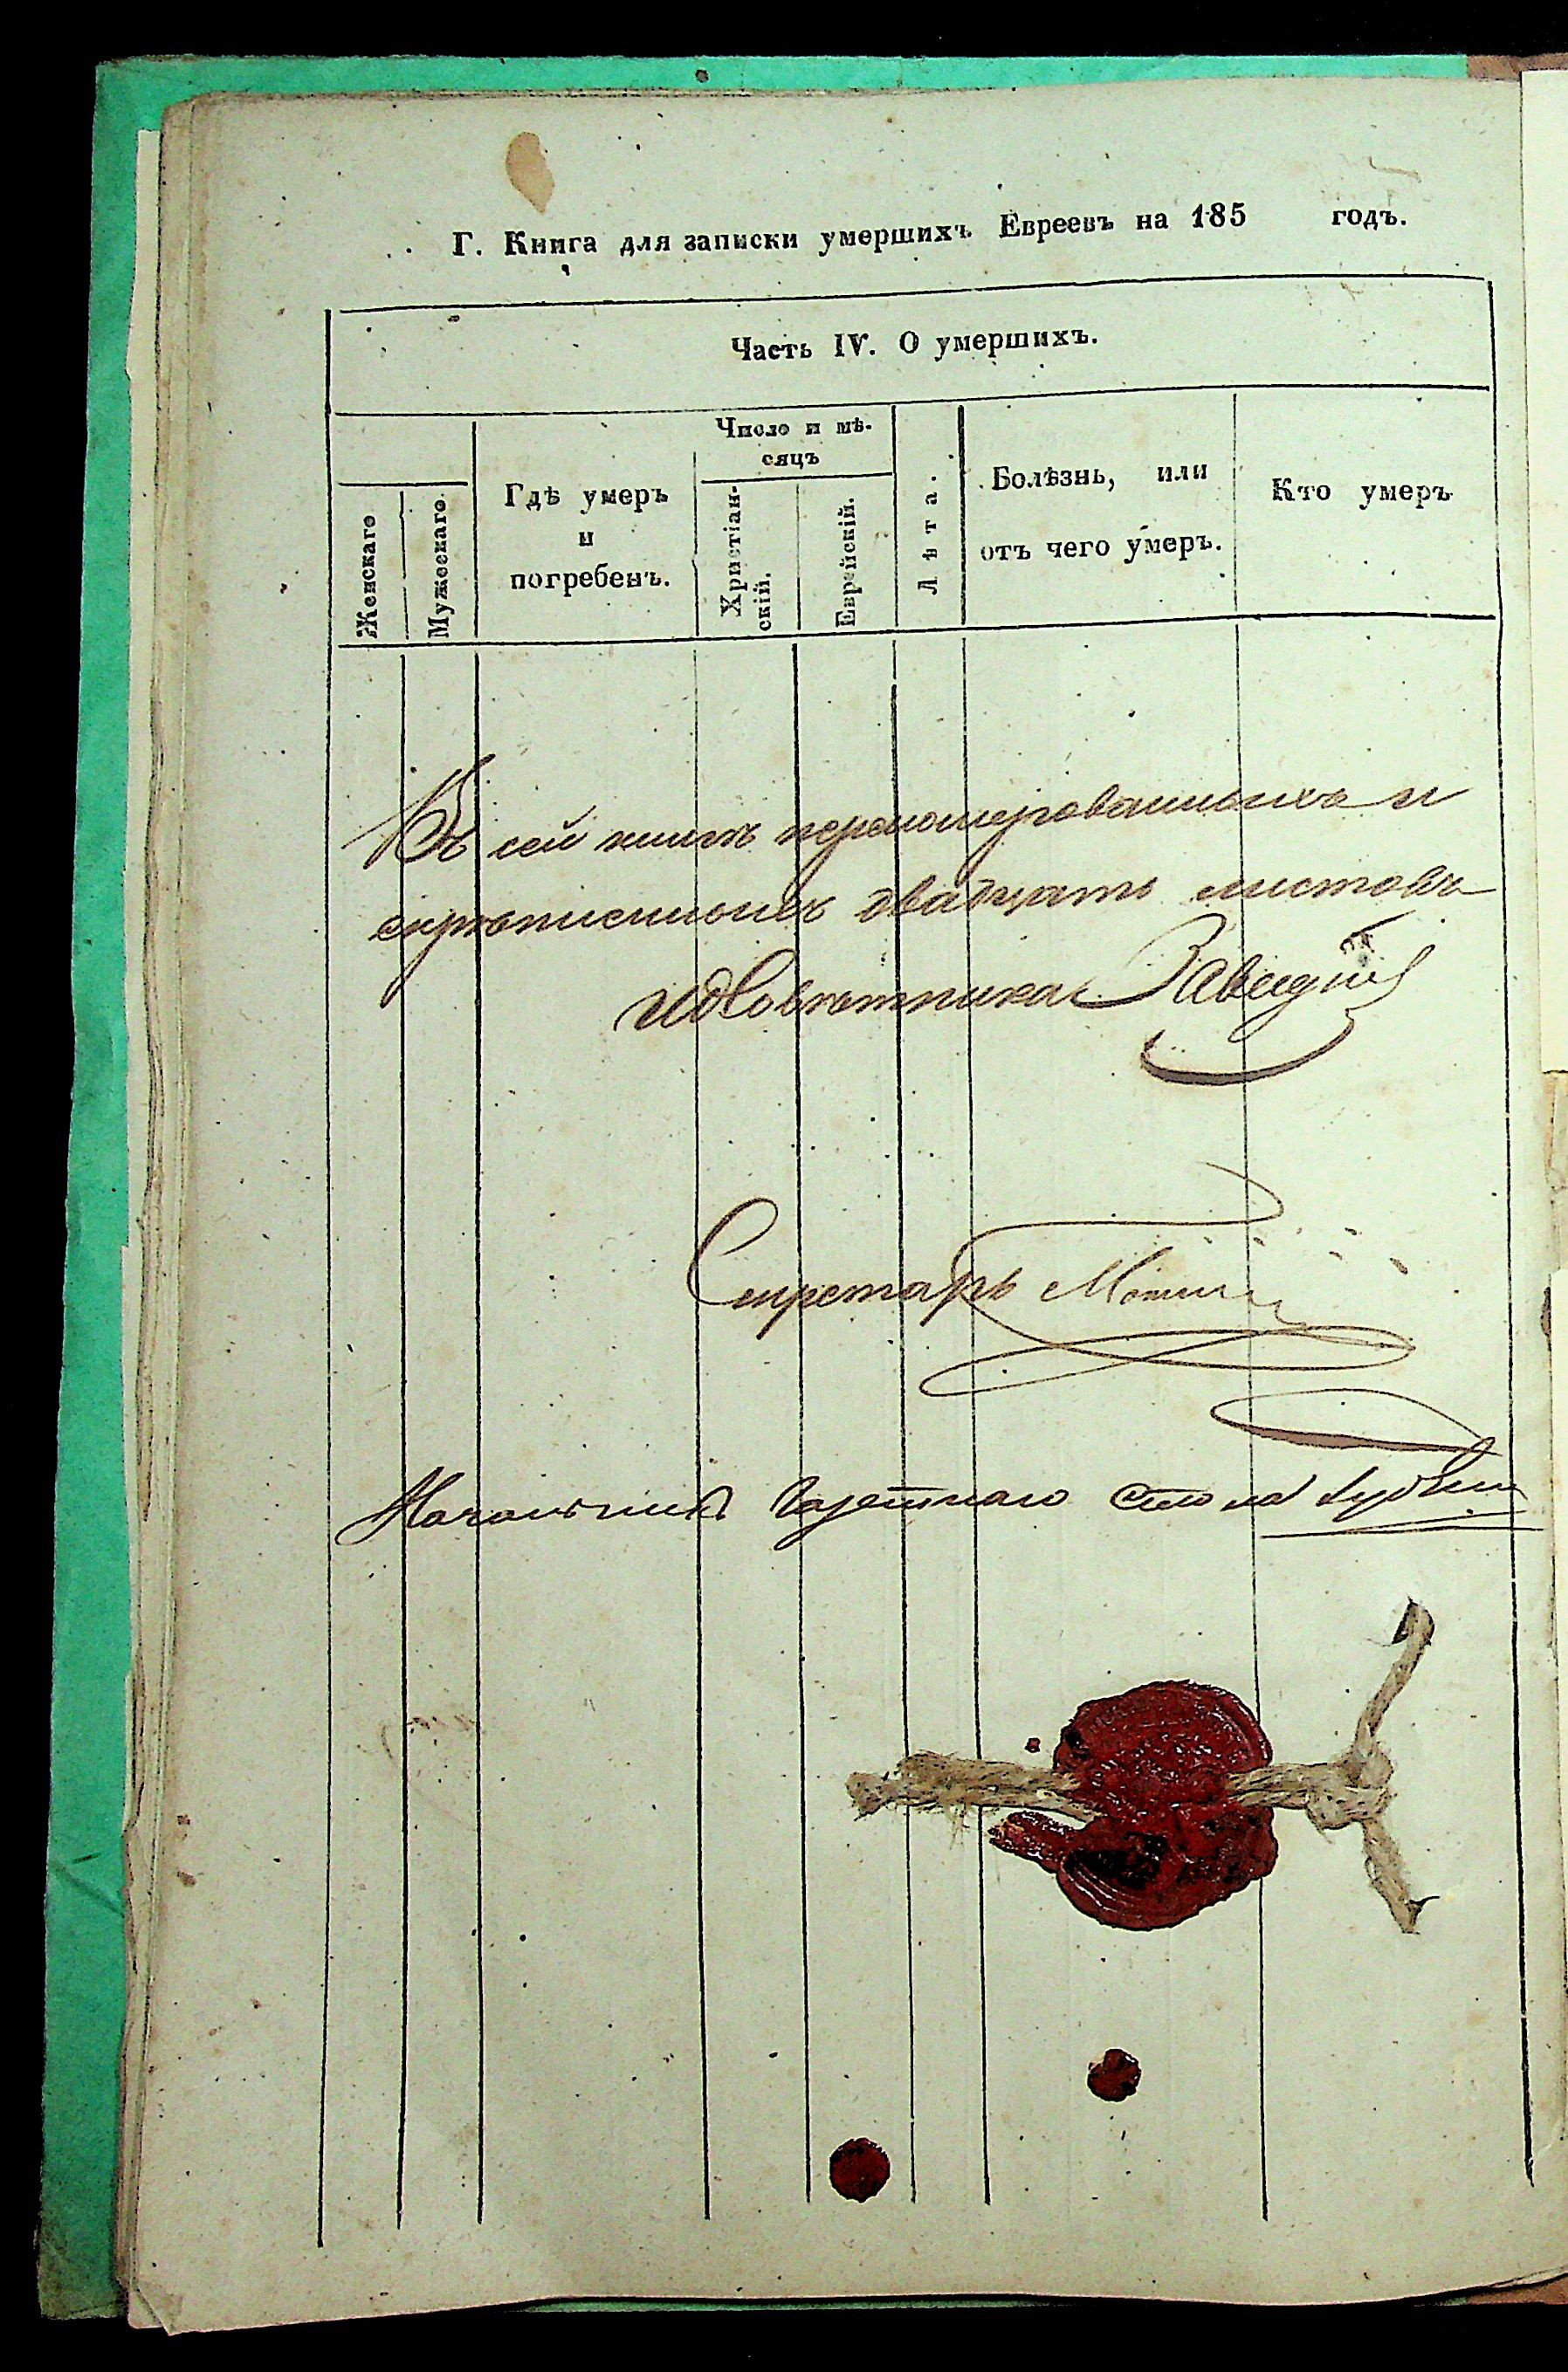 Г. Книга для записки умершихъ Евреевъ на 185 годъ.
Часть IV. О умершихъ.
Женскаго
Мужескаго
Гдѣ умеръ
и
погребенъ.
Число и мѣ-
сяцъ
Христіан-
скій.
Еврейскій.
Лѣта.
Болѣзнь, или
отъ чего умеръ.
Кто умеръ
Въ сей книгѣ перономерованныхъ и
скрѣпленныхъ двадцать листовъ
ИдСовѣтника
Секретарь
Начальникъ Газетнаго Стола